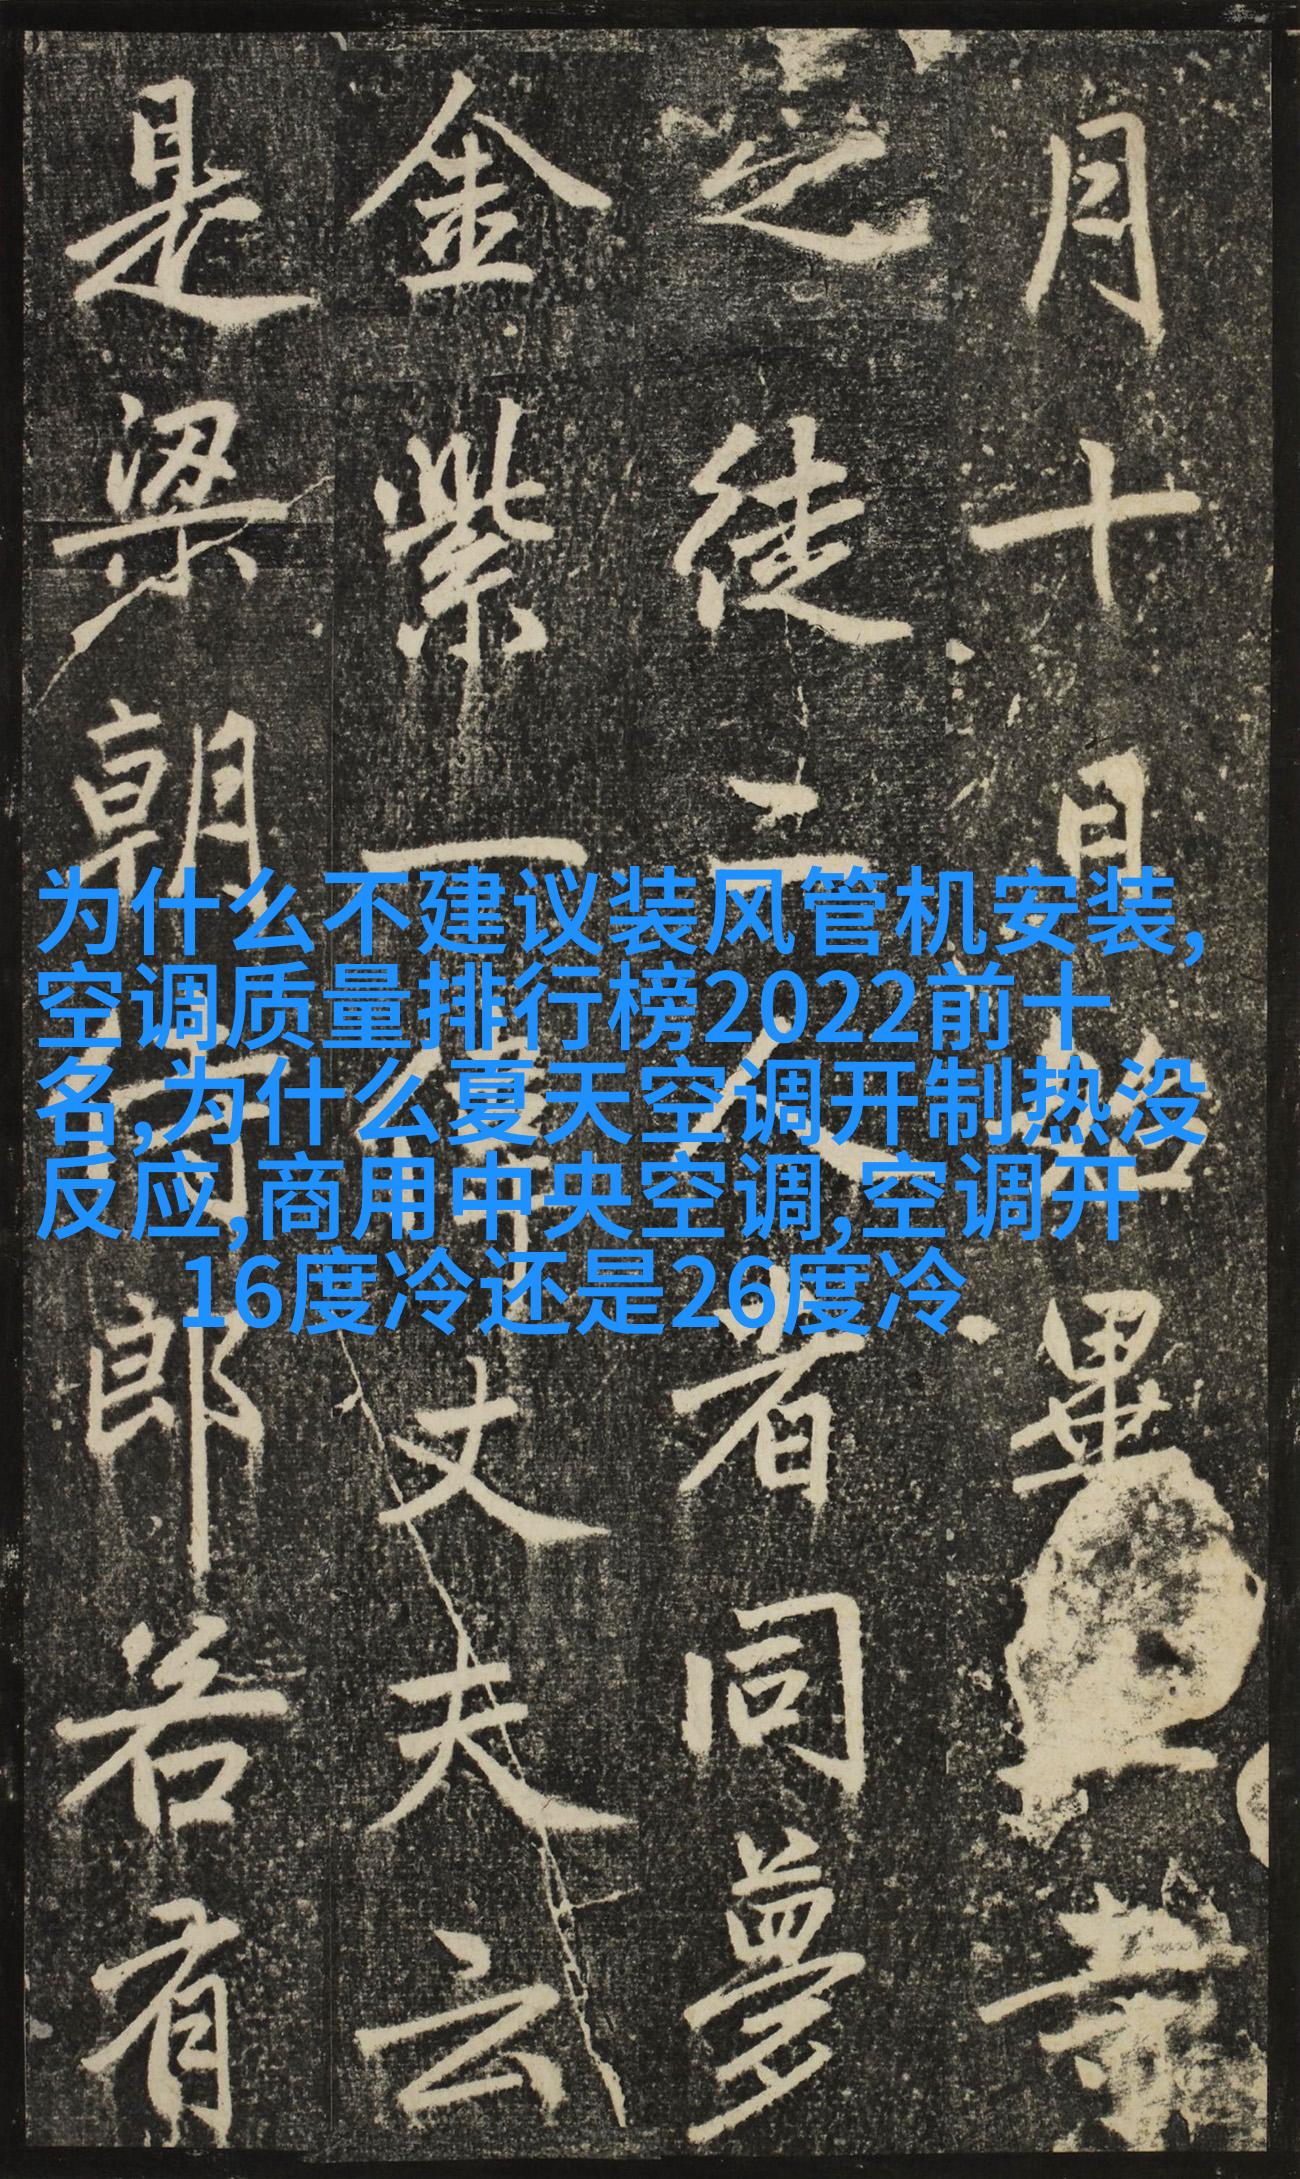 月十日始畢
之徒二人者同夢
金紫一偉丈夫云
是梁朝郎若有
为什么不建议装风管机安装,
空调质量排行榜2022前十
名,为什么夏天空调开制热没
反应,商用中央空调,空调开
16度冷还是26度冷